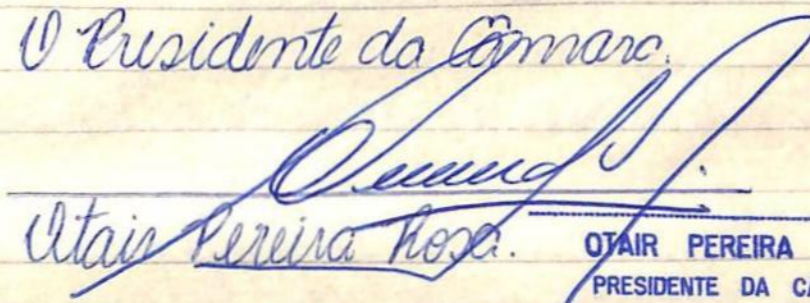 O Presidente da Câmara.
Otair Pereira Rosa.
OTAIR PEREIRA
PRESIDENTE DA C